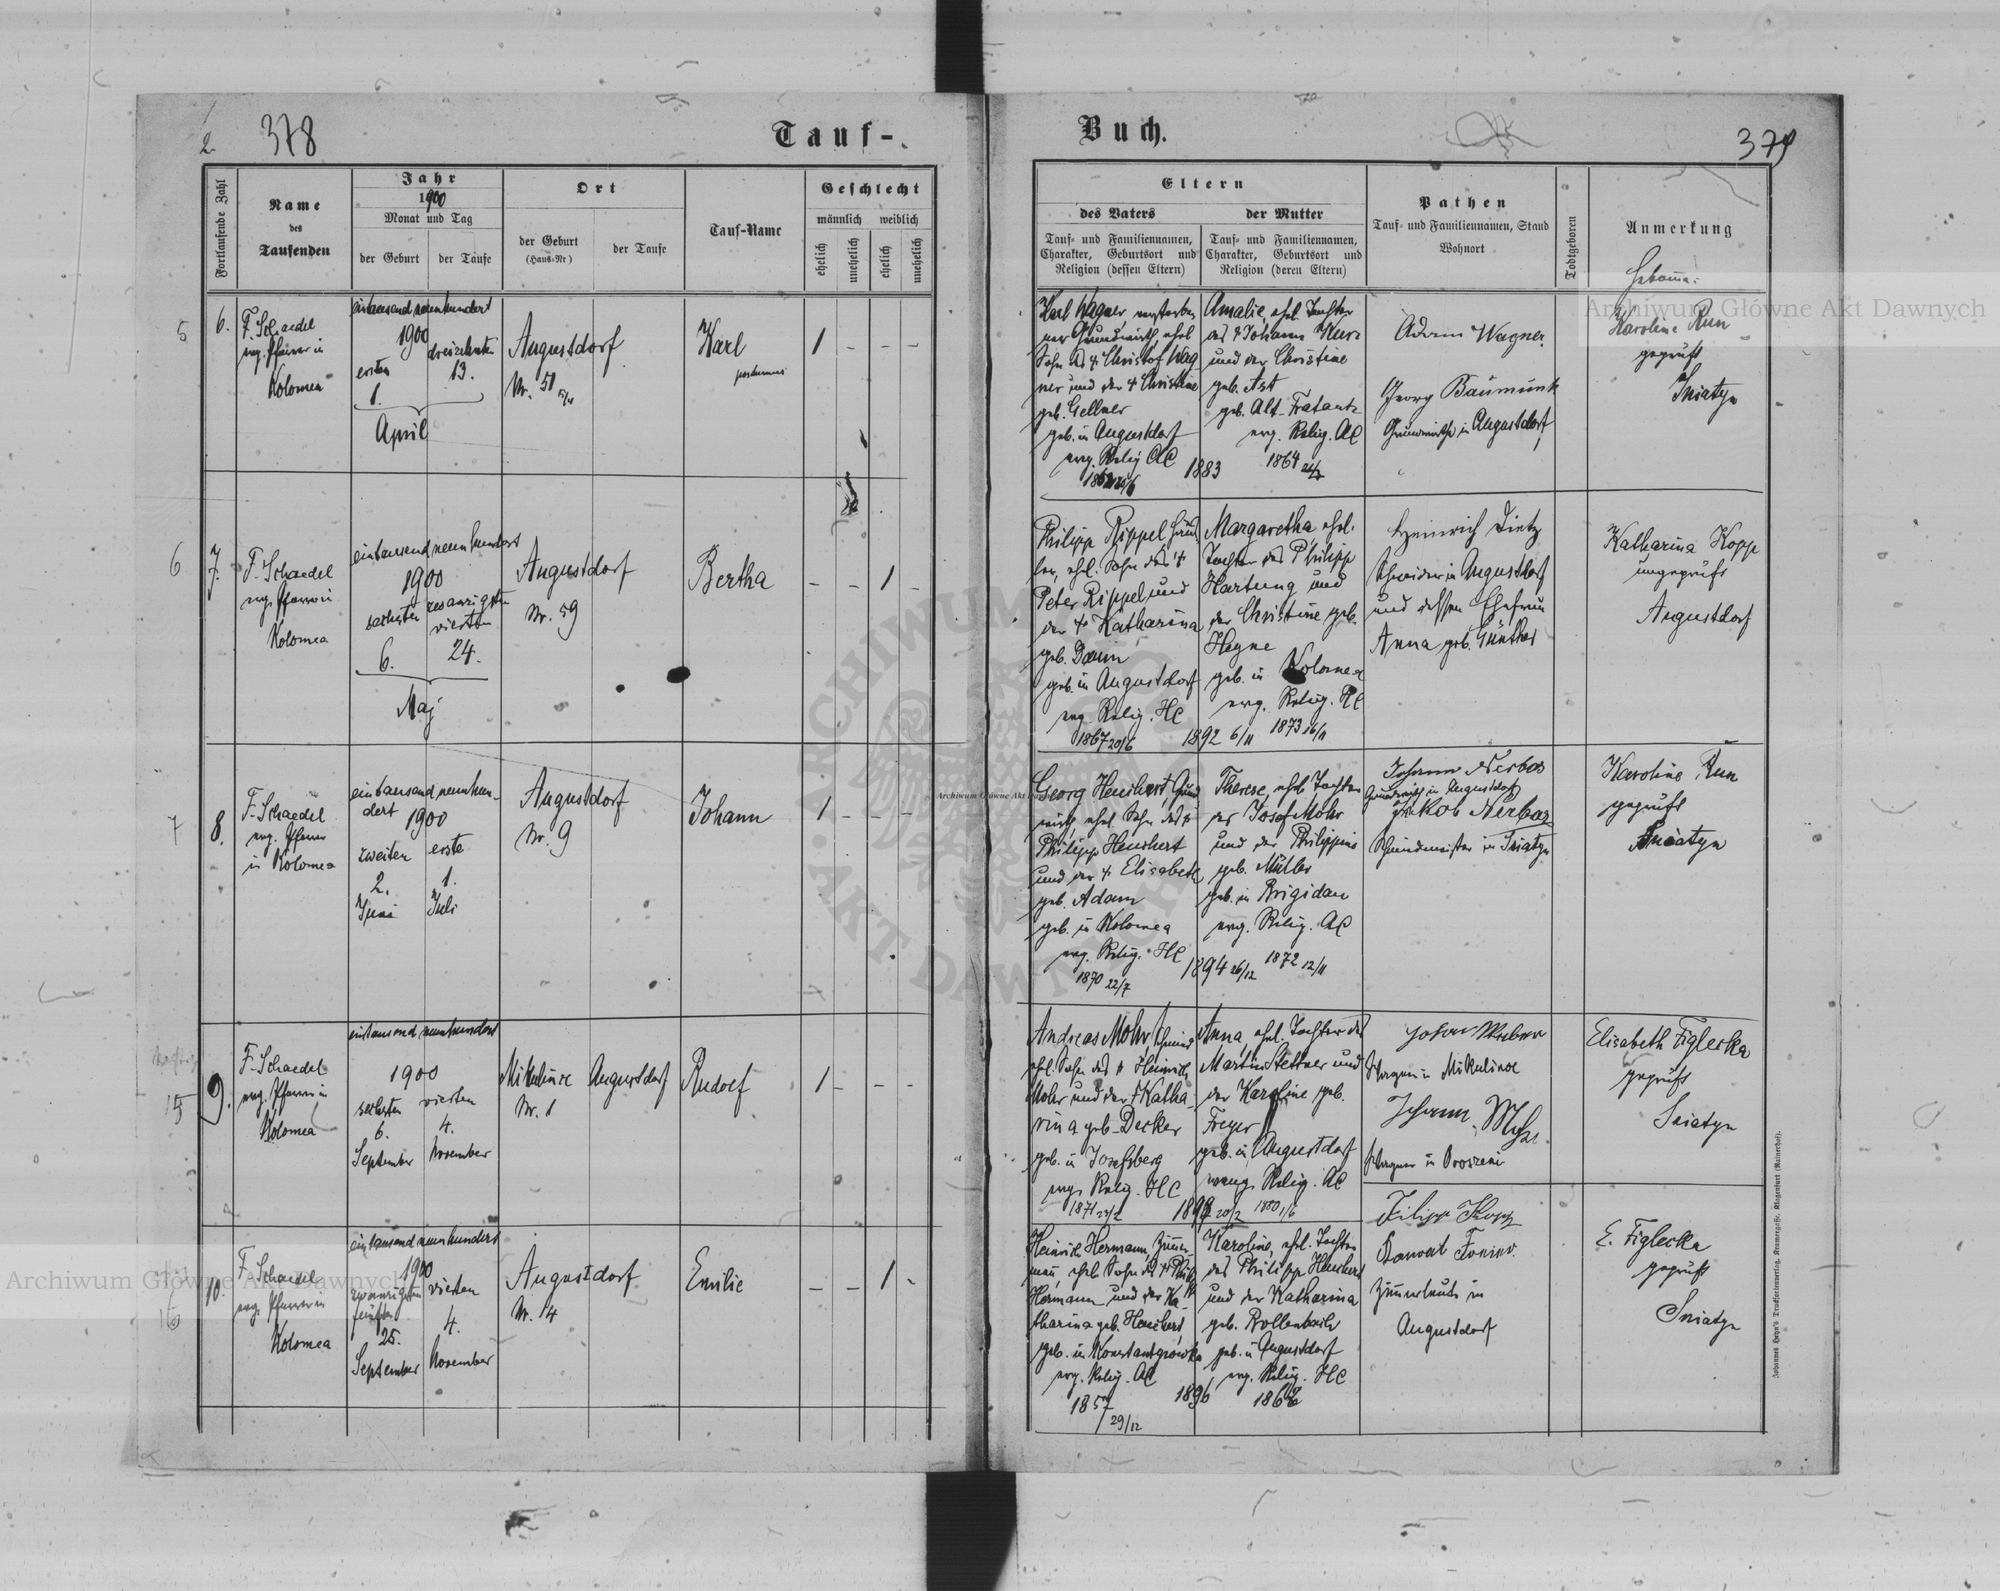 2. 378
Tauf-
Buch.
379
Fortlaufende Zahl
Name
des
Taufenden
Jahr
1900
Monat und Tag
der Geburt
der Taufe
Ort
der Geburt
(Haus-Nr)
der Taufe
Tauf-Name
Geschlecht
männlich weiblich
ehelich
unehelich
ehelich
unehelich
Eltern
des Vaters
der Mutter
Tauf- und Familiennamen,
Charakter, Geburtsort und
Religion (dessen Eltern)
Tauf- und Familiennamen,
Charakter, Geburtsort und
Religion (deren Eltern)
Pathen
Tauf- und Familiennamen, Stand
Wohnort
Todtgeboren
Anmerkung
5
6.
F. Schaedel
evg. Pfarrer in
Kolomea
eintausend neunhundert
1900
ersten
1.
dreizehnten
13.
April
Augustdorf
Nr. 51
Karl
posthumus
1 - - -
Karl Wagner, verstorben
ner Grundwirth, ehel
Sohn des + Christof Wag
ner und der + Christine
geb. Gellner
geb. in Augustdorf
evg. Relig AC
1883
Amalie, ehel. Tochter
des + Johann Kurz
und der Christine
geb. Ast
geb. Alt-Fratautz
evg. Relig. AC
1864
Adam Wagner
Georg Baumunk
Grundwirthe in Augustdorf
Hebamme:
Karoline Run
geprüft
Sniatyn
6
7.
F. Schaedel
evg. Pfarrer in
Kolomea
eintausend neunhundert
1900
sechsten
6.
zwanzigsten
vierten
24.
Maj
Augustdorf
Nr. 59
Bertha
- - 1 -
Philipp Rippel
ler, ehl. Sohn des +
Peter Rippel und
der + Katharina
geb. Daum
geb. in Augustdorf
evg. Relig. HC
1867 20/6
1892 6/11
Margaretha, ehel.
Tochter des Philipp
Hartung und
der Christine geb.
Hegne
geb. in Kolomea
evg. Relig. HC
1873 16/11
Heinrich Dietz
Schneider in Augustdorf
und dessen Ehefrau
Anna geb. Günther
Katharina Kopp
ungeprüft
Augustdorf
7
8.
F. Schaedel
evg. Pfarrer
in Kolomea
eintausend neunhun-
dert 1900
zweiten
2.
Juni
erste
1.
Juli
Augustdorf
Nr. 9
Johann
1 - - -
Georg Heuchert Grund
wirth, ehel. Sohn des +
Philipp Heuchert
und der + Elisabeth
geb. Adam
geb. in Kolomea
evg. Relig. HC
1870 22/7
1894 26/12
Therese, ehel. Tochter
des Josef Mohr
und der Philippine
geb. Müller
geb. in Brigidau
evg. Relig. AC
1872 12/11
Johann Nerbas
Grundwirth in Augustdorf
Jakob Nerbas
Schmiedmeister in Sniatyn
Karoline Run
geprüft
Sniatyn
15
9.
F. Schaedel
evg. Pfarrer in
Kolomea
eintausend neunhundert
1900
sechsten
6.
September
vierten
4.
November
Mikulince
Nr. 1
Augustdorf
Rudolf
1 - - -
Andreas Mohr
ehl. Sohn des + Heinrich
Mohr und der + Katha-
rina geb. Decker
geb. in Josefsberg
evg. Relig. HC
1871
20/2
Anna, ehel. Tochter des
Martin Kettner und
der Karoline geb.
Freyer
geb. in Augustdorf
evang. Relig. AC
1880 1/6
Johann Weber
Wagner in Mikulince
Johann
Wagner in
Elisabeth Figlecka
geprüft
Sniatyn
16
10.
F. Schaedel
evg. Pfarrer in
Kolomea
eintausend neunhundert
1900
zwanzigsten
fünften
25.
September
vierten
4.
November
Augustdorf
Nr. 14
Emilie
- - 1 -
Heinrich Hermann, Zimmer-
mann, ehel. Sohn des + Philipp
Hermann und der Ka-
tharina geb. Heuchert,
geb. in Konstantzowka
evg. Relig. AC
1857
29/12
1896
Karoline, ehel. Tochter
des Philipp Heuchert
und der Katharina
geb. Rollenbach
geb. in Augustdorf
evg. Relig. HC
Filipp Kopp
Zimmerleute in
Augustdorf
E. Figlecka
geprüft
Sniatyn
Archiwum Główne Akt Dawnych
Archiwum Główne Akt Dawnych